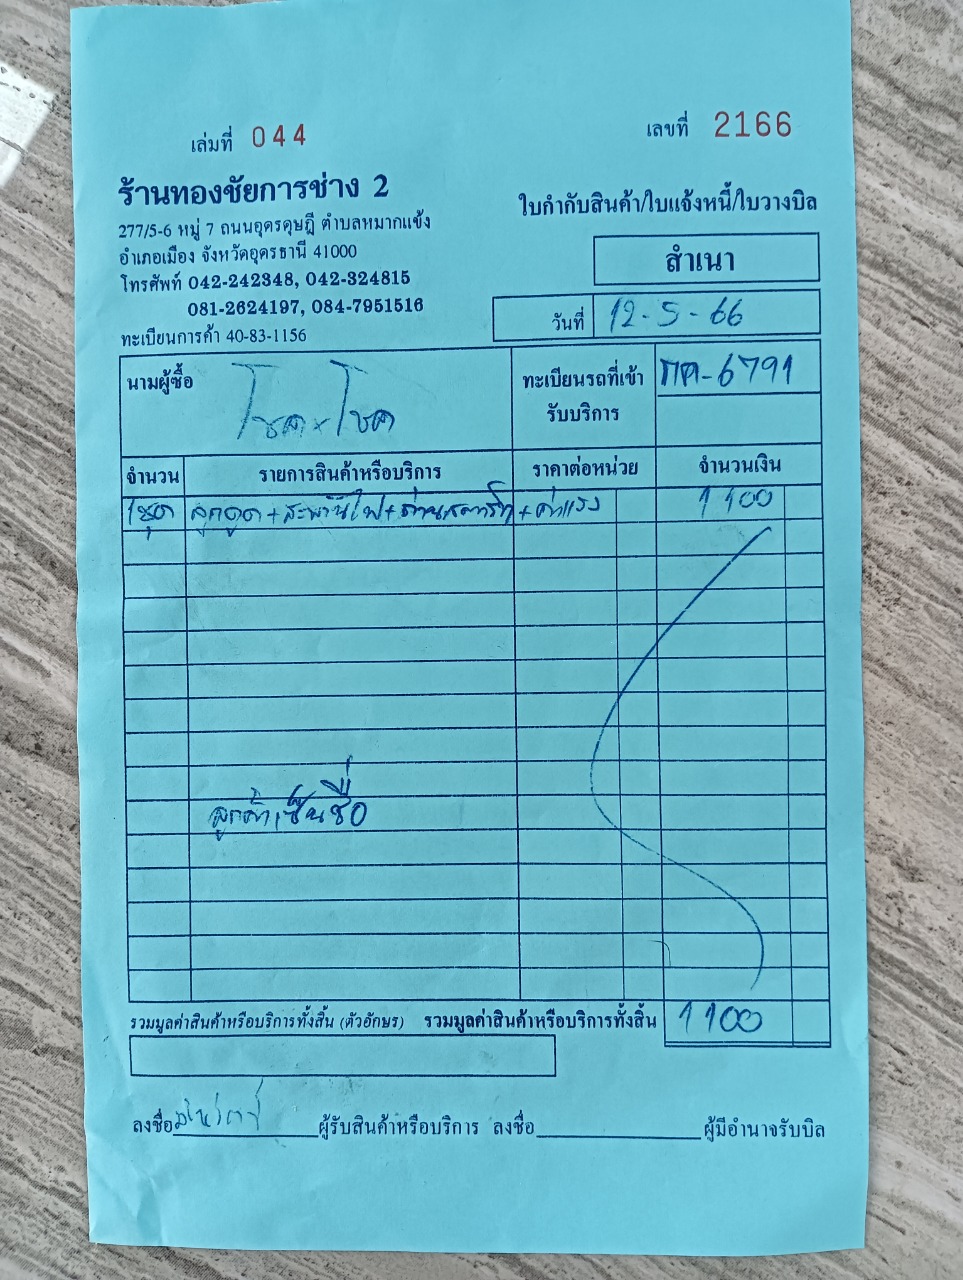 เล่มที่ 044
เลขที่ 2166
ร้านทองชัยการช่าง 2
277/5-6 หมู่ 7 ถนนอุดรดุษฎี ตำบลหมากแข้ง
อำเภอเมือง จังหวัดอุดรธานี 41000
โทรศัพท์ 042-242348, 042-324815
081-2624197, 084-7951516
ทะเบียนการค้า 40-83-1156
ใบกำกับสินค้า/ใบแจ้งหนี้/ใบวางบิล
สำเนา
วันที่ 12-5-66
นามผู้ซื้อ โชคxโชค
ทะเบียนรถที่เข้ารับบริการ 6791
จำนวน รายการสินค้าหรือบริการ ราคาต่อหน่วย จำนวนเงิน
1ชุด ลูกดูด+สะพานไฟ+ถ่านสตาร์ท+ค่าแรง 1100
ลูกค้าเซ็นชื่อ
รวมมูลค่าสินค้าหรือบริการทั้งสิ้น (ตัวอักษร) รวมมูลค่าสินค้าหรือบริการทั้งสิ้น 1100
ลงชื่อ ผู้รับสินค้าหรือบริการ ลงชื่อ ผู้มีอำนาจรับบิล